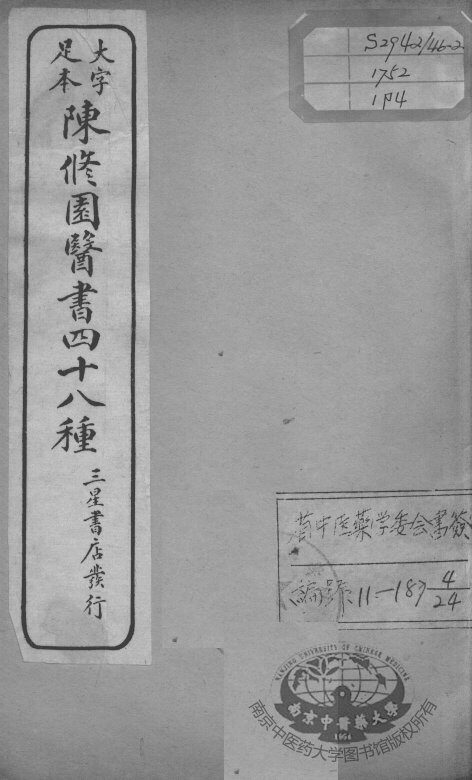 大字
足本
陳修園醫書四十八種
三星書店發行
S2942/46-2
1752
1P4
省中医藥学委会書簽
編號 11-187 4/24
NANJING UNIVERSITY OF CHINESE MEDICINE
南京中醫藥大學
1954
南京中医药大学图书馆版权所有